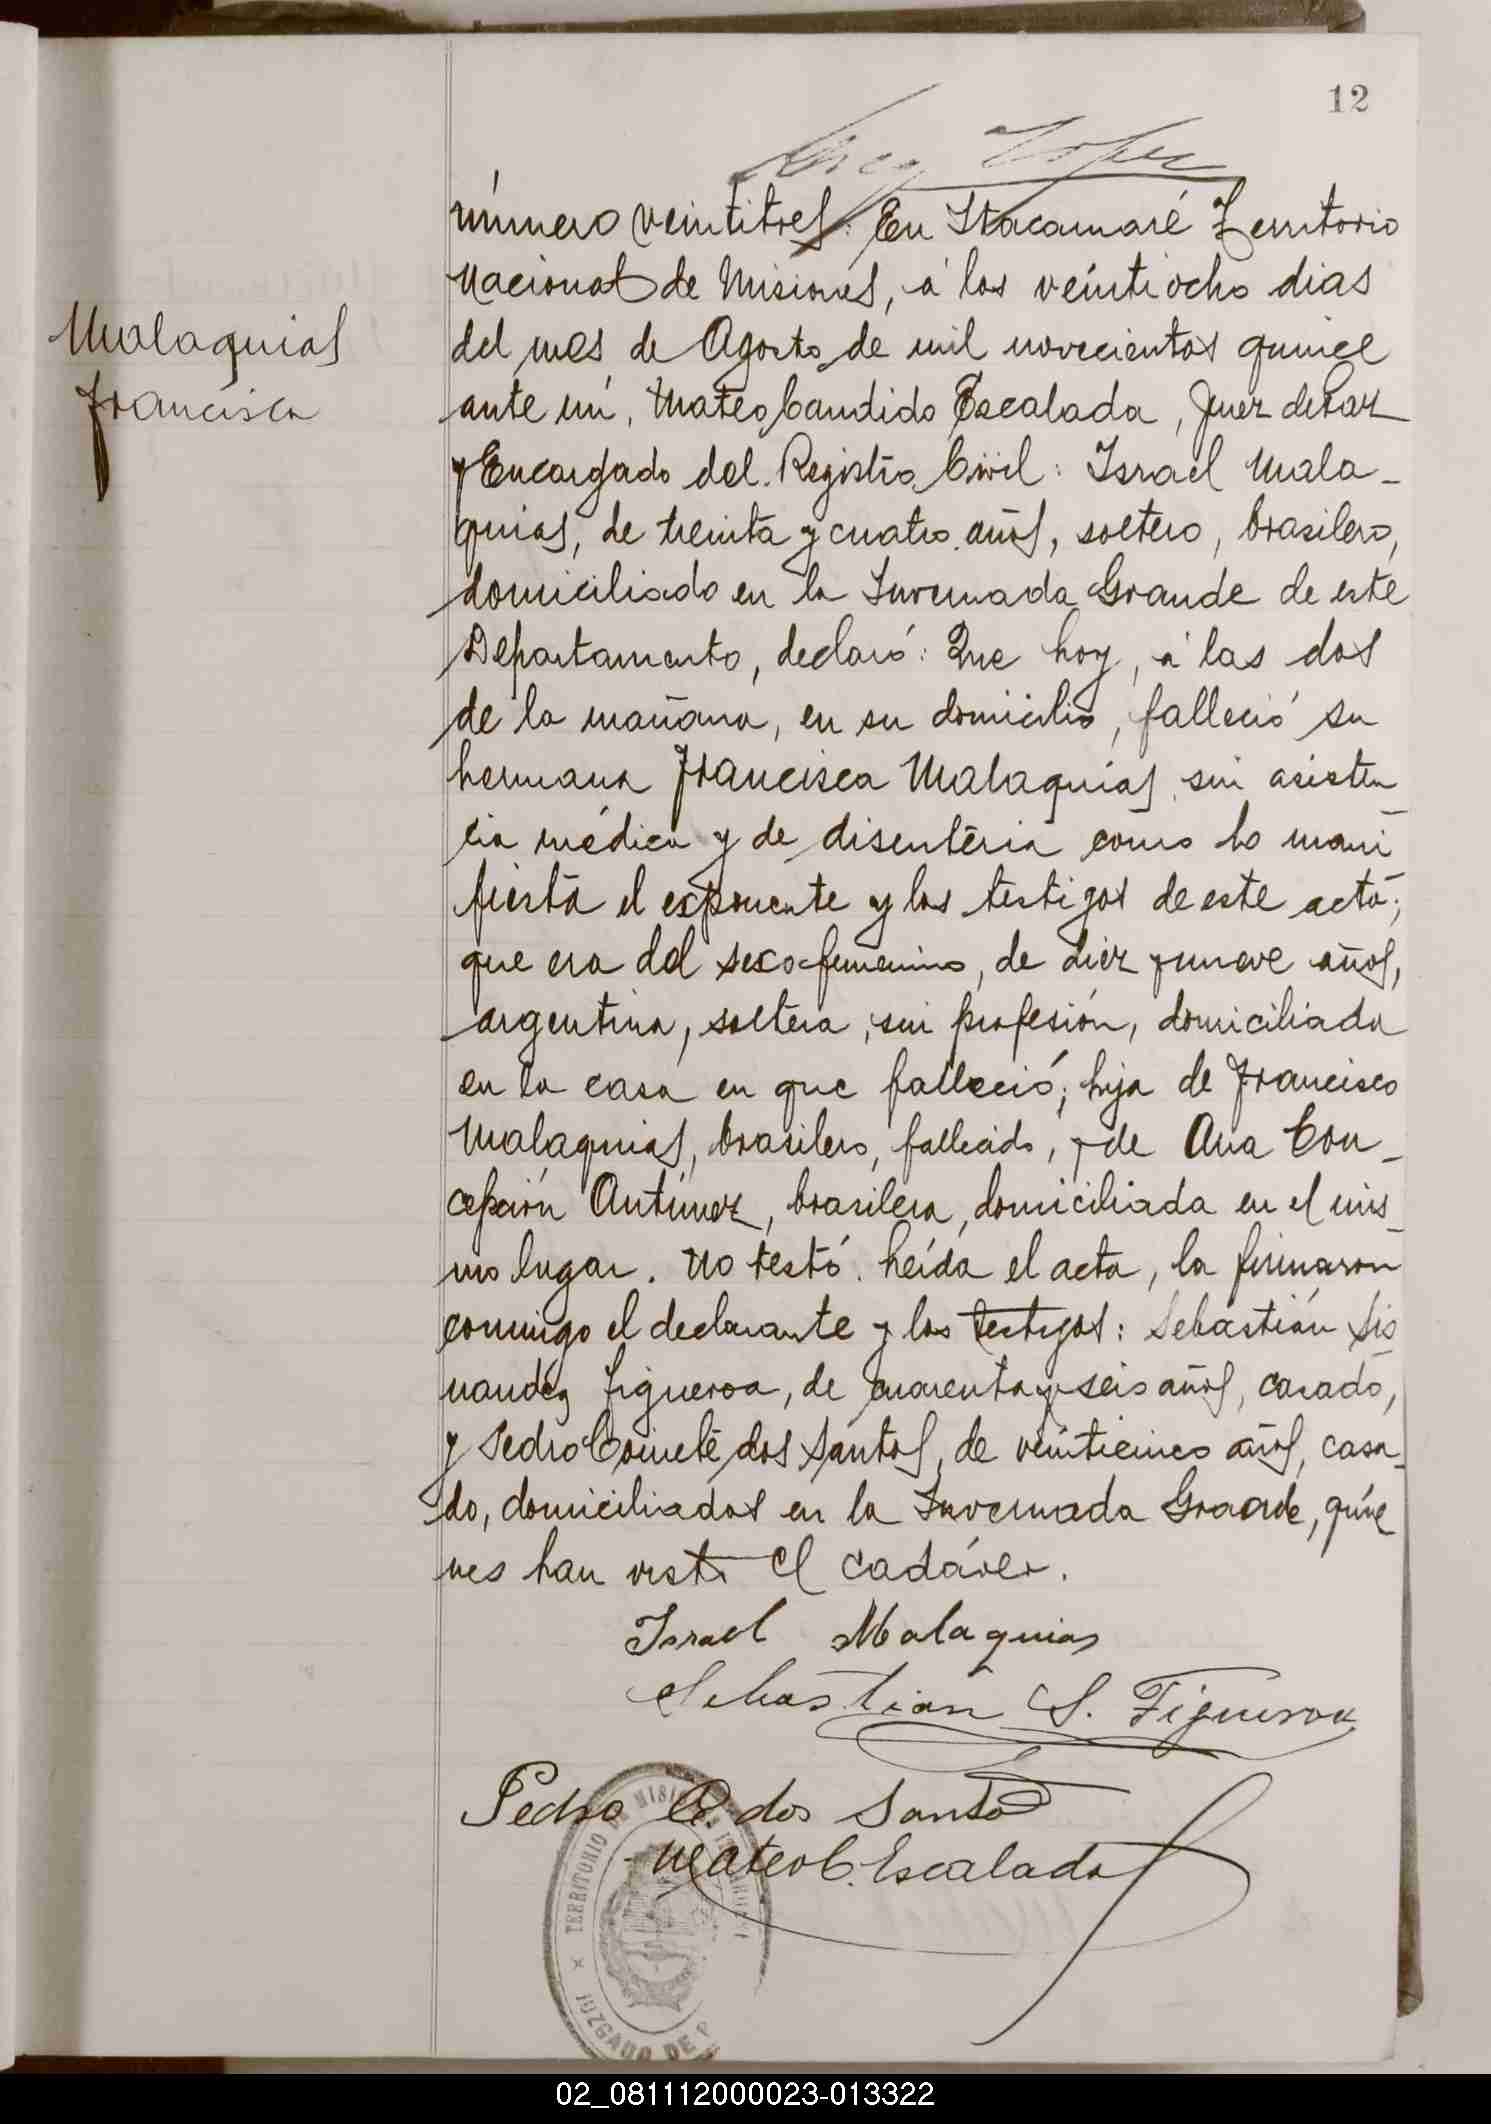 12
número veintitres: En Itacamaré Territorio
Nacional de Misiones, á los veintiocho dias
del mes de Agosto de mil novecientos quince
Malaquias
Francisca
ante mi, Mateo Candido Escalada, Juez de Paz
y Encargado del Registro Civil: Israel Mala-
quias, de treinta y cuatro años, soltero, brasilero,
domiciliado en la Invernada Grande de este
Departamento, declaró: Que hoy, á las dos
de la mañana, en su domicilio, falleció su
hermana Francisca Malaquias, sin asisten
cia médica y de disentería como lo mani
fiesta el exponente y los testigos de este acto;
que era del sexo femenino, de diez y nueve años,
argentina, soltera, sin profesión, domiciliada
en la casa en que falleció; hija de Francisco
Malaquias, brasilero, fallecido, y de Ana Con-
cepción Antunez, brasilera, domiciliada en el mis-
mo lugar. No testó. Leída el acta, la firmaron
conmigo el declarante y los testigos: Sebastián Sis
nandez Figueroa, de cuarenta y seis años, casado,
y Pedro dos Santos, de veinticinco años, casa-
do, domiciliados en la Invernada Grande, quie
nes han visto el cadáver.
Israel Malaquias
Sebastian S. Figueroa
Pedro C. dos Santos
Mateo C. Escalada
TERRITORIO DE MISIONES
JUZGADO DE P
02_081112000023-013322